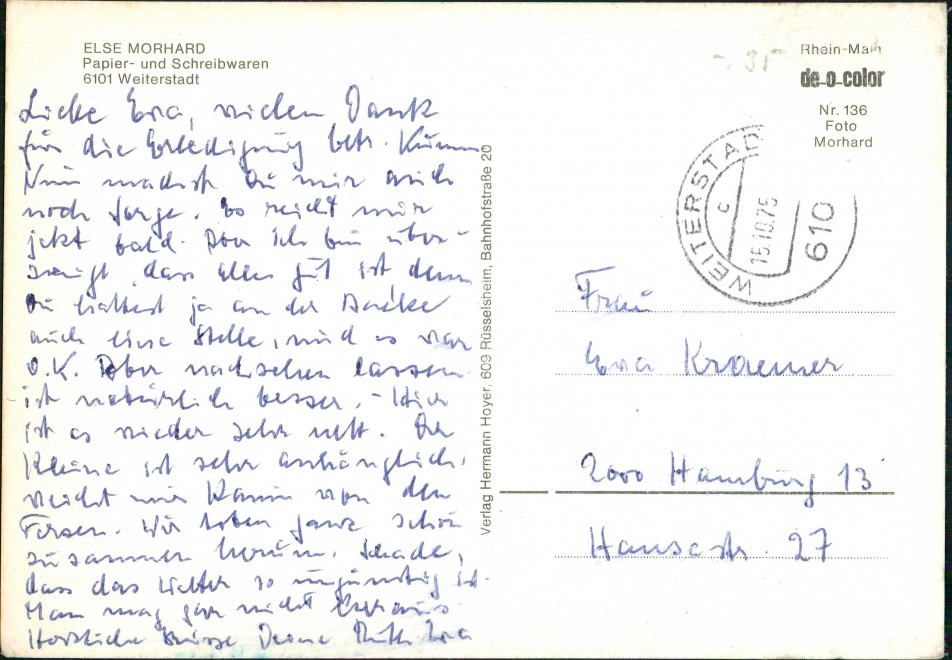 ELSE MORHARD
Papier- und Schreibwaren
6101 Weiterstadt
Liebe Eva, vielen Dank
für die Erledigung betr. Kumm
Nun machst Du mir auch
noch Sorge. Es reicht mir
jetzt bald. Aber ich bin über-
zeugt, dass alles gut ist denn
Du hattest ja an der Backe
auch eine Stelle, und es war
O.K. Aber nachsehen lassen
ist natürlich besser. - Hier
ist es wieder sehr nett. Der
Kleine ist sehr anhänglich,
weicht mir kaum von den
Fersen. Wir toben ganz schön
zusammen herum. Schade,
dass das Wetter so ungünstig ist.
Man mag gar nicht heraus
Herzliche Grüsse Deine Eva
Verlag Hermann Hoyer, 609 Rüsselsheim, Bahnhofstraße 20
-. 35
Rhein-Main
de-o-color
Nr. 136
Foto
Morhard
WEITERSTAD
c
15.10.75
610
Frau
Eva Kraemer
2000 Hamburg 13
Hansastr. 27